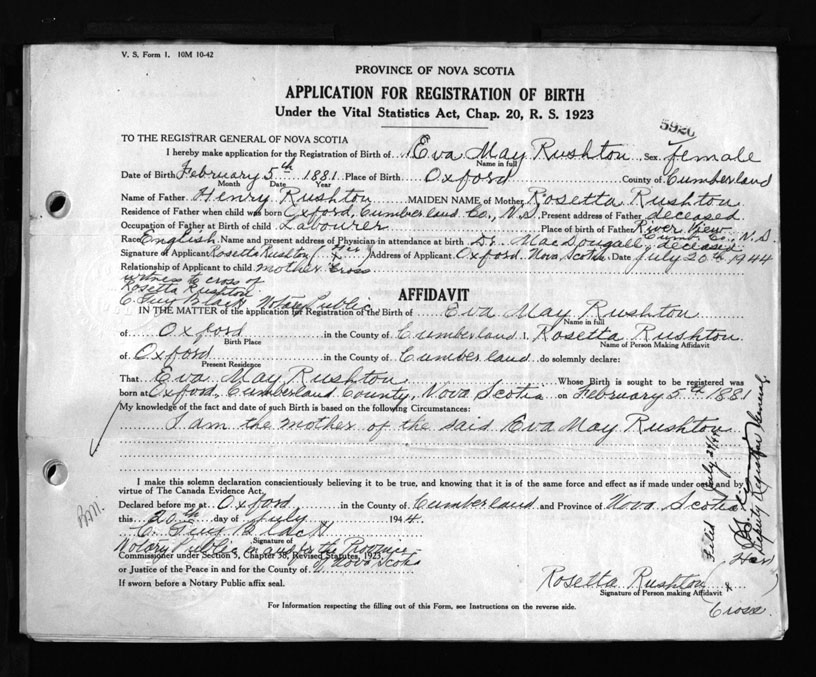 V. S. Form 1. 10M 10-42
PROVINCE OF NOVA SCOTIA
APPLICATION FOR REGISTRATION OF BIRTH
Under the Vital Statistics Act, Chap. 20, R. S. 1923
5920
TO THE REGISTRAR GENERAL OF NOVA SCOTIA
I hereby make application for the Registration of Birth of Eva May Rushton Sex female
Name in full
Date of Birth February 5th 1881 Place of Birth Oxford County of Cumberland
Month Date Year
Name of Father Henry Rushton MAIDEN NAME of Mother Rosetta Rushton
Residence of Father when child was born Oxford, Cumberland Co., N.S. Present address of Father deceased
Occupation of Father at Birth of child Labourer Place of birth of Father River View Cumb. Co., N.S.
Race English Name and present address of Physician in attendance at birth Dr. MacDougall, deceased
Signature of Applicant Rosetta Rushton (Her x Address of Applicant Oxford, Nova Scotia Date July 20th 1944
Relationship of Applicant to child mother Cross
witness to cross of
Rosetta Rushton
C. Guy Black Notary Public
AFFIDAVIT
IN THE MATTER of the application for Registration of the Birth of Eva May Rushton
Name in full
of Oxford in the County of Cumberland I, Rosetta Rushton
Birth Place Name of Person Making Affidavit
of Oxford in the County of Cumberland do solemnly declare:
Present Residence
That Eva May Rushton Whose Birth is sought to be registered was
born at Oxford, Cumberland County, Nova Scotia on February 5th 1881
My knowledge of the fact and date of such Birth is based on the following Circumstances:
I am the mother of the said Eva May Rushton
I make this solemn declaration conscientiously believing it to be true, and knowing that it is of the same force and effect as if made under oath and by
virtue of The Canada Evidence Act,
Declared before me at Oxford in the County of Cumberland and Province of Nova Scotia
this 20th day of July 1944.
C. Guy Black
Signature of
Notary Public in and for the Province
Commissioner under Section 5, Chapter 38, Revised Statutes, 1923,
of Nova Scotia
or Justice of the Peace in and for the County of
If sworn before a Notary Public affix seal.
Rosetta Rushton (Her x
Signature of Person making Affidavit
Cross
For Information respecting the filling out of this Form, see Instructions on the reverse side.
Filed July 24/44
Deputy Registrar General